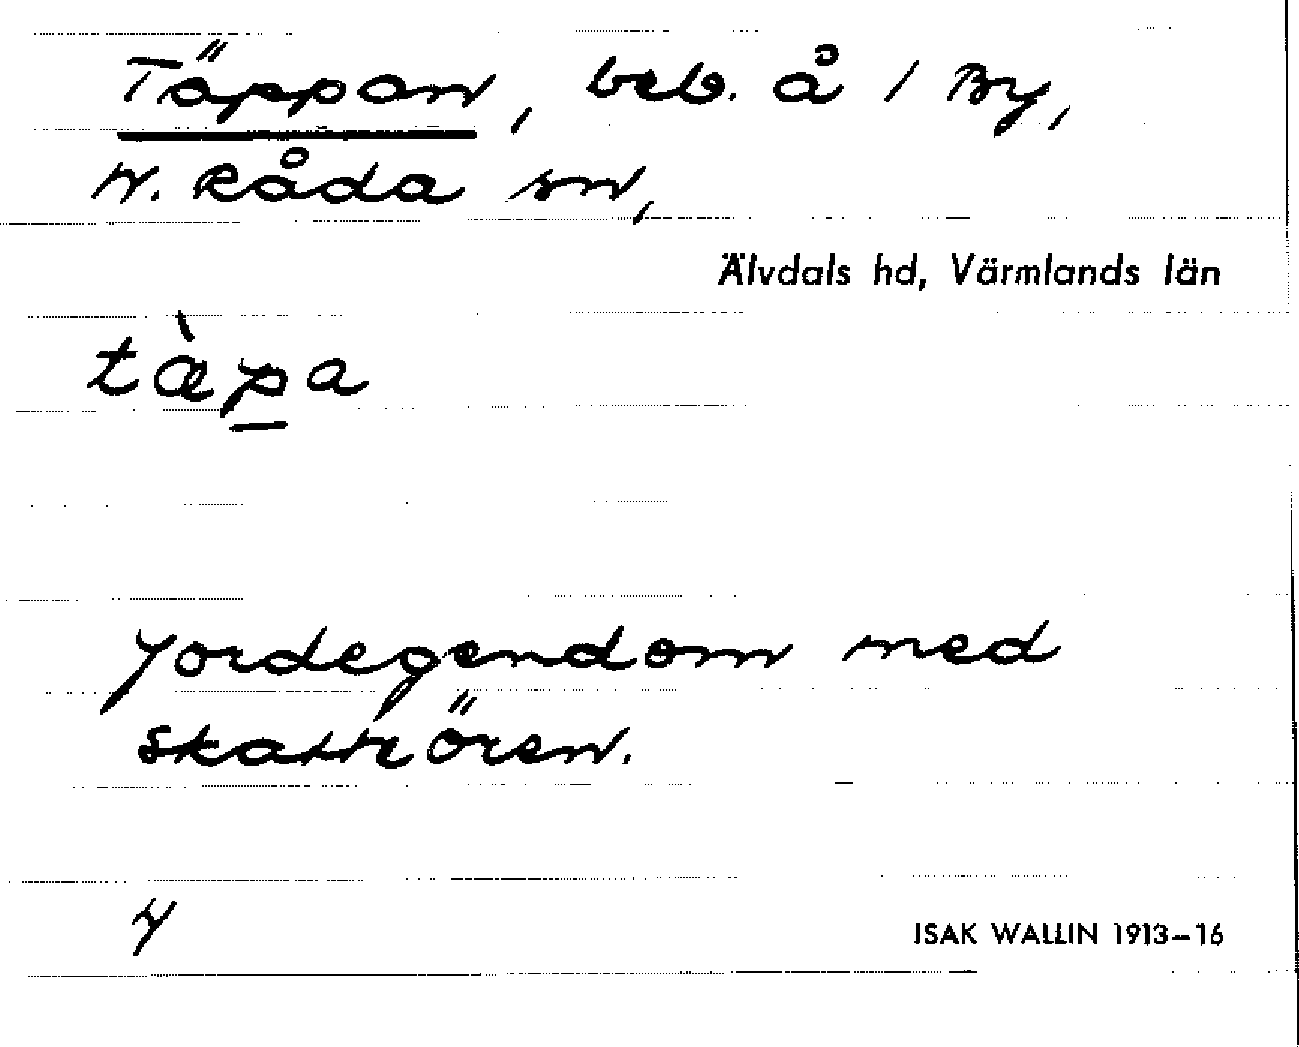 Täppan, beb. å 1 By,
N. Råda sn,
Älvdals hd, Värmlands län
tæ̀pa
Jordegendom med
skattören.
4
ISAK WALLIN 1913–16